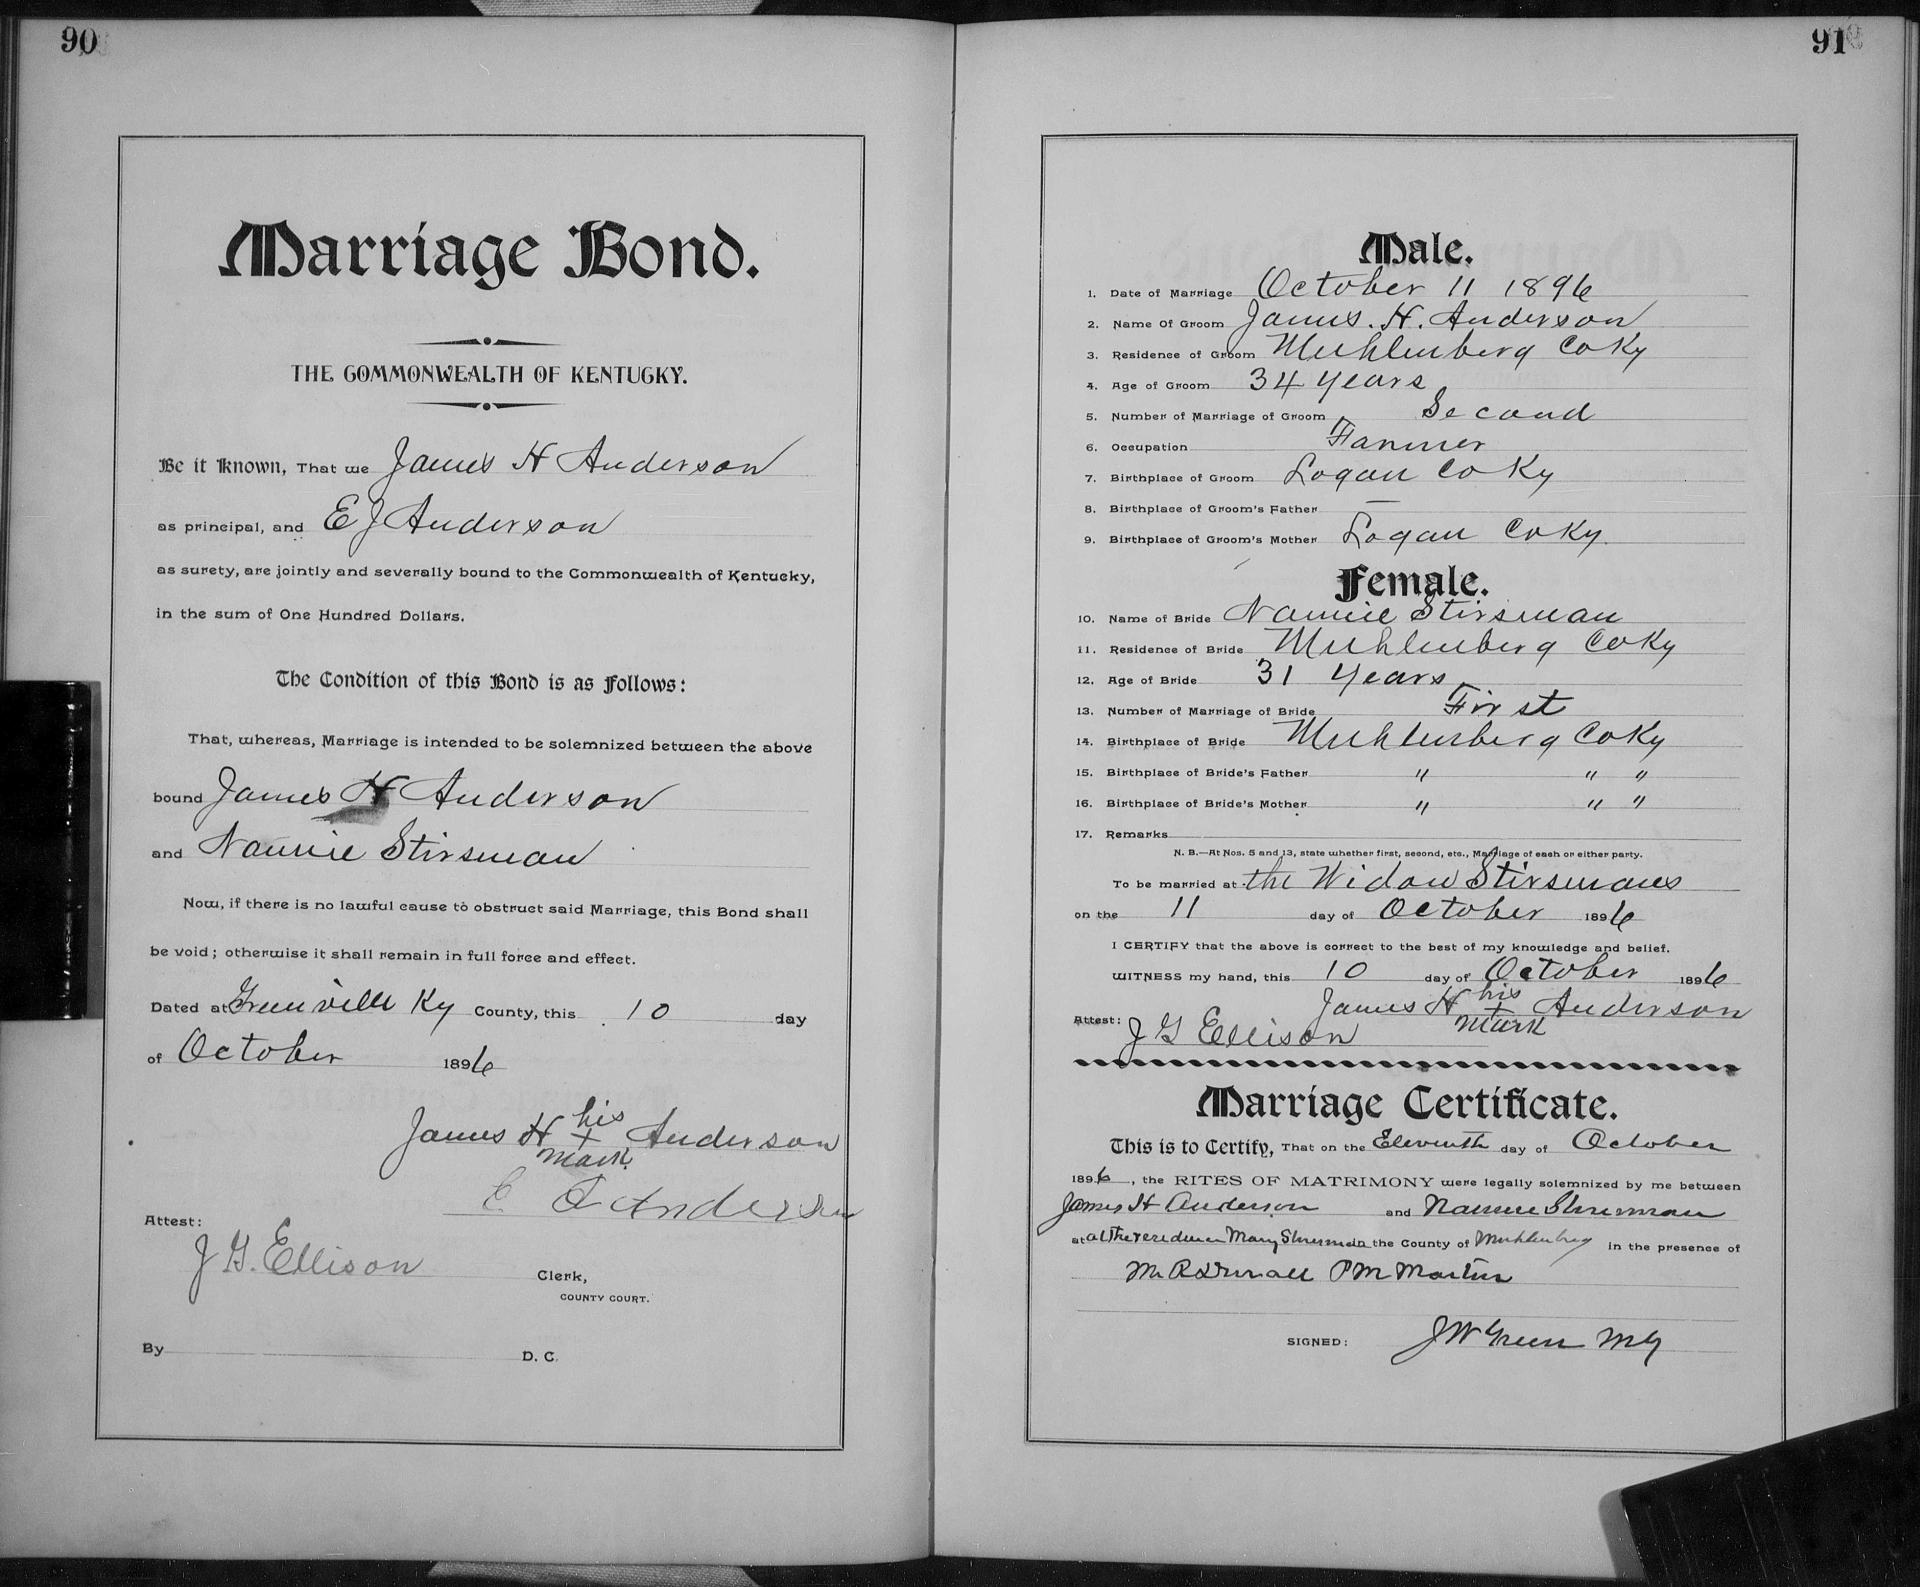 90
Marriage Bond.
THE COMMONWEALTH OF KENTUCKY.
Be it Known, That we James H Anderson
as principal, and E J Anderson
as surety, are jointly and severally bound to the Commonwealth of Kentucky,
in the sum of One Hundred Dollars.
The Condition of this Bond is as Follows:
That, whereas, Marriage is intended to be solemnized between the above
bound James H Anderson
and Nannie Stirsman
Now, if there is no lawful cause to obstruct said Marriage, this Bond shall
be void; otherwise it shall remain in full force and effect.
Dated at Greenville Ky County, this 10 day
of October 1896
his
James H + Anderson
mark
E J Anderson
Attest:
J G. Ellison
Clerk,
COUNTY COURT.
By D. C.
91
Male.
1. Date of Marriage October 11 1896
2. Name Of Groom James. H. Anderson
3. Residence of Groom Muhlenberg Co Ky
4. Age of Groom 34 years
5. Number of Marriage of Groom Second
6. Occupation Farmer
7. Birthplace of Groom Logan Co Ky
8. Birthplace of Groom's Father —
9. Birthplace of Groom's Mother Logan Co Ky.
Female.
10. Name of Bride Nannie Stirsman
11. Residence of Bride Muhlenberg Co Ky
12. Age of Bride 31 years
13. Number of Marriage of Bride First
14. Birthplace of Bride Muhlenberg Co Ky
15. Birthplace of Bride's Father " " "
16. Birthplace of Bride's Mother " " "
17. Remarks
N. B.—At Nos. 5 and 13, state whether first, second, etc., Marriage of each or either party.
To be married at the Widow Stirsmans
on the 11 day of October 1896
I CERTIFY that the above is correct to the best of my knowledge and belief.
WITNESS my hand, this 10 day of October 1896
his
James H + Anderson
mark
Attest:
J G Ellison
Marriage Certificate.
This is to Certify, That on the Eleventh day of October
1896, the RITES OF MATRIMONY were legally solemnized by me between
James H Anderson and Nannie Stirsman
at at the residence Mary Stirsman in the County of Muhlenberg in the presence of
P M Martin
SIGNED: J W Green M G